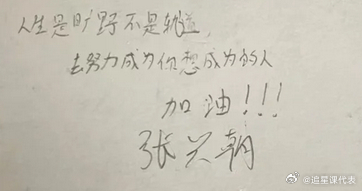 人生是旷野不是轨道，
去努力成为你想成为的人
加油!!!
张兴朝
@追星课代表